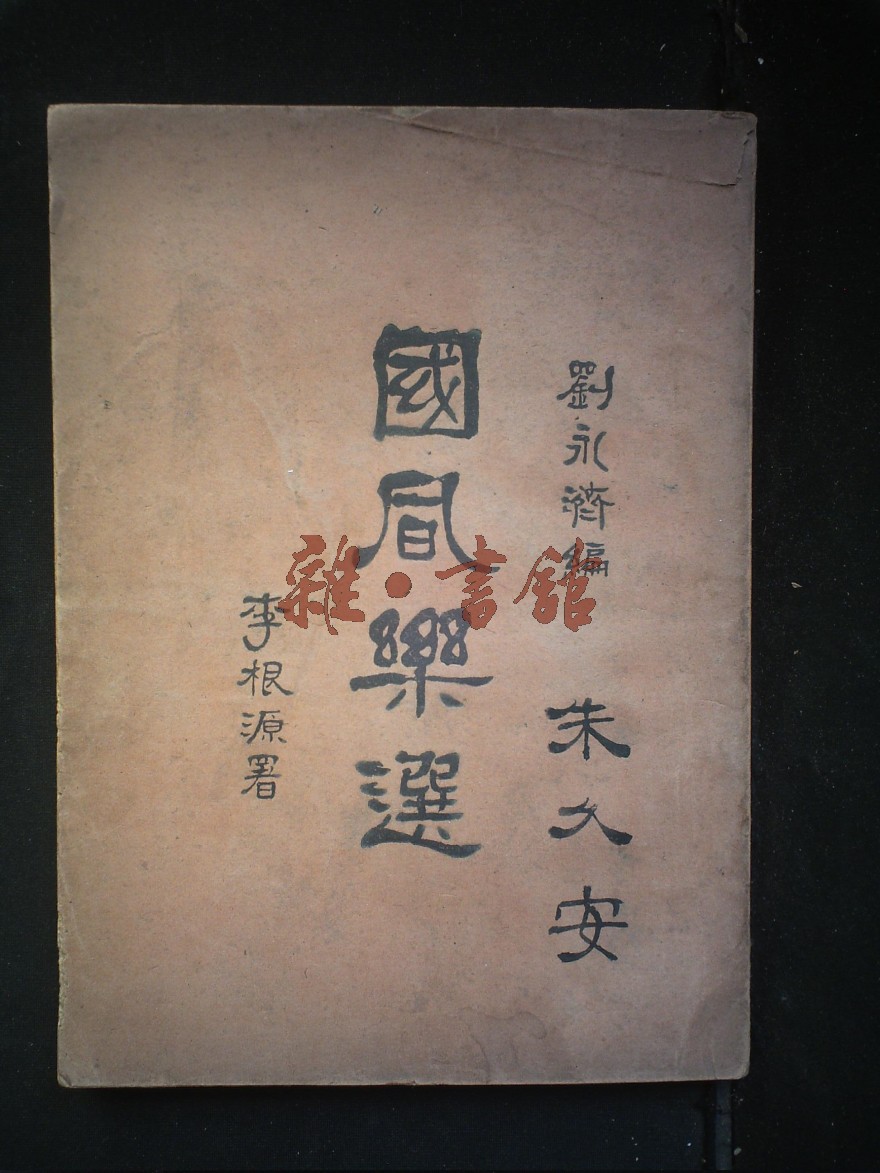 劉永濟編
朱久安
國風樂選
李根源署
雜·書館